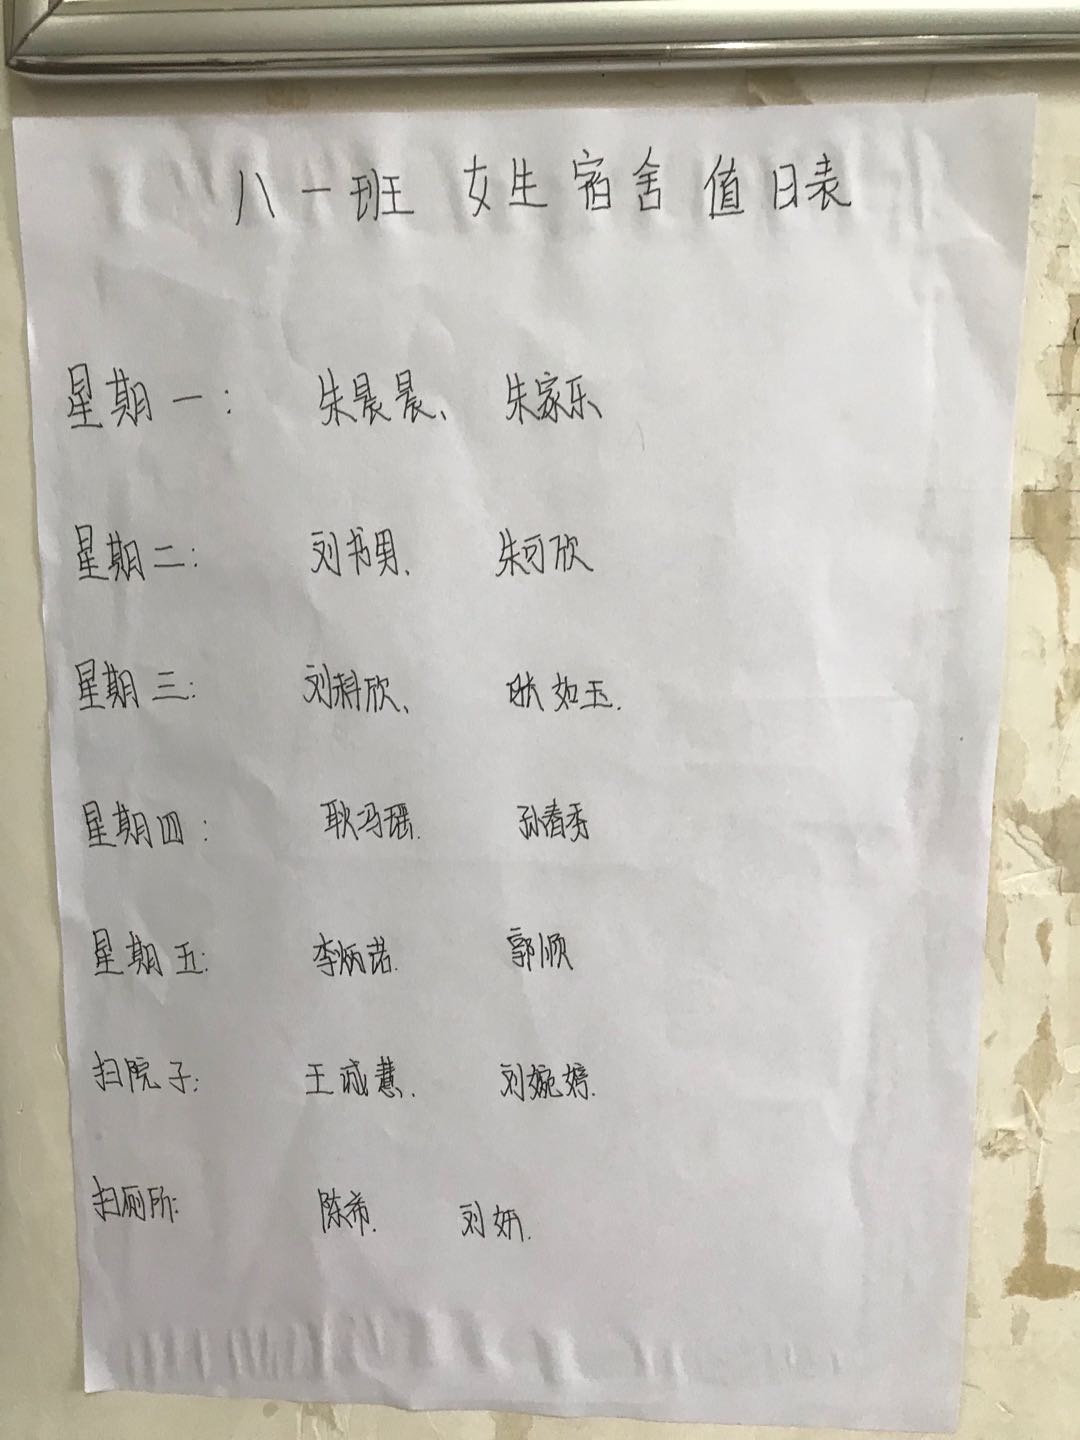 八一班 女生宿舍值日表
星期一: 朱晨晨、 朱家乐
星期二: 刘书男、 朱可欣
星期三: 刘科欣、 耿如玉.
星期四: 耿冯瑶. 孙春秀
星期五: 李炳诺. 郭顺
扫院子: 王诚慧. 刘婉婷.
扫厕所: 陈希. 刘妍.